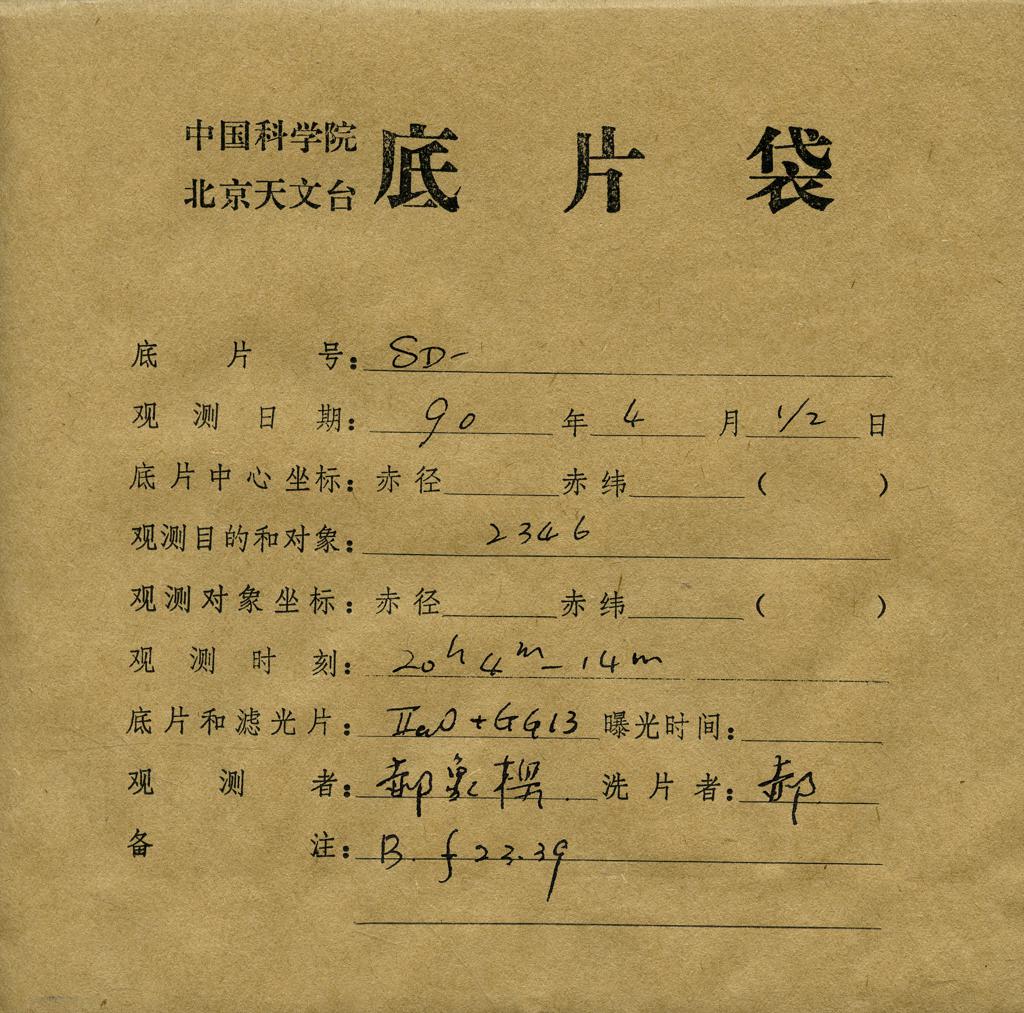 中国科学院
北京天文台 底片袋
底片号：SD-
观测日期：90年4月1/2日
底片中心坐标：赤径 赤纬 （ ）
观测目的和对象：2346
观测对象坐标：赤径 赤纬 （ ）
观测时刻：20h 4m - 14m
底片和滤光片：IIaO + GG13 曝光时间：
观测者：郝象樑 洗片者：郝
备注：B. f 23.39